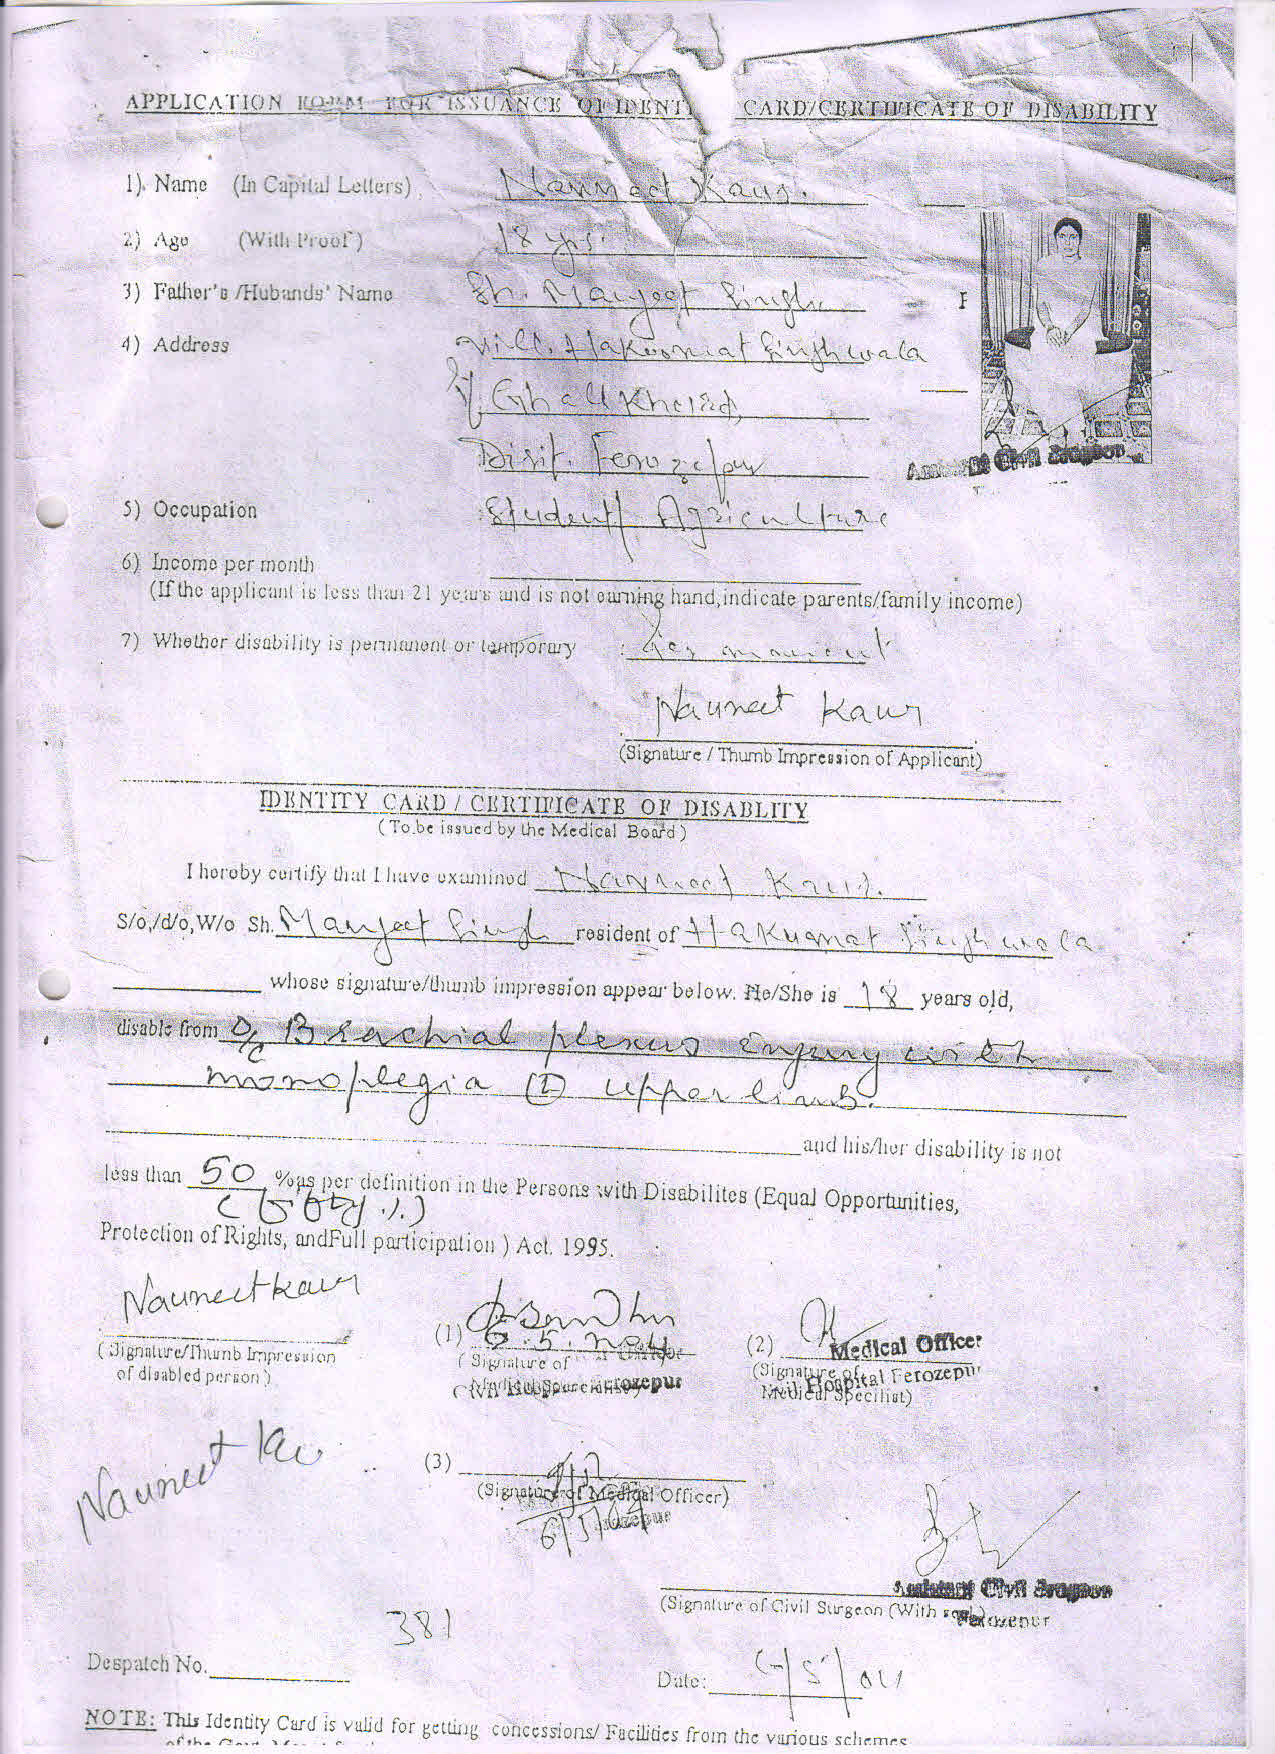 APPLICATION FORM FOR ISSUANCE OF IDENTI CARD/CERTIFICATE OF DISABILITY
1). Name (In Capital Letters) Navneet Kaur.
2) Age (With Proof) 18 yrs.
3) Father's /Hubands' Name Sh. Manjeet Singh
4) Address Vill. Hakoomat Singh wala
Ghall Khurd,
Distt. Ferozepur
5) Occupation Student/ Agriculture
6) Income per month
(If the applicant is less than 21 years and is not earning hand,indicate parents/family income)
7) Whether disability is permanent or temporary : Permanent
Navneet Kaur
(Signature / Thumb Impression of Applicant)
Assistant Civil Srogeon
IDENTITY CARD / CERTIFICATE OF DISABLITY
(To.be issued by the Medical Board)
I hereby certify that I have examined Navneet Kaur.
S/o,/d/o,W/o Sh. Manjeet Singh resident of Hakumat Singh wala
whose signature/thumb impression appear below. He/She is 18 years old,
disable from O/C Brachial plexus injury with
monoplegia (L) upper limb.
and his/her disability is not
less than 50 %as per definition in the Persons with Disabilites (Equal Opportunities,
(fifty %)
Protection of Rights, andFull participation ) Act. 1995.
Navneet kaur
(1)
(2) Medical Officer
( Signature/Thumb Impression
of disabled person)
( Signature of
Ferozepur
(Signature of
Civil Hospital Ferozepur
Medical Specilist)
Navneet Kau
(3)
(Signature of Medical Officer)
6/5/04
Ferozepur
Assistant Civil Srogeon
(Signature of Civil Surgeon (With seal)
Ferozepur
381
Despatch No.
Date: 6/5/04
NOTE: This Identity Card is valid for getting concessions/ Facilities from the various schemes